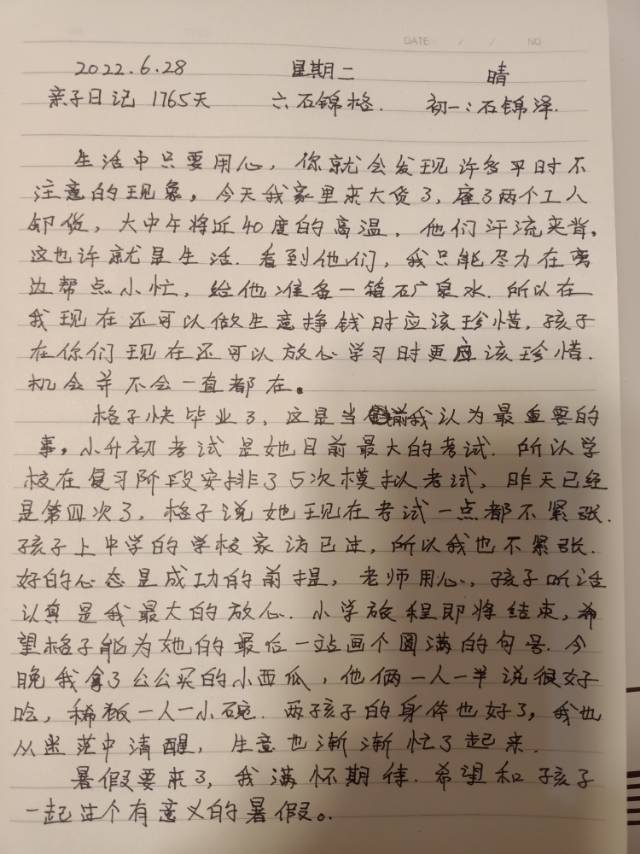 DATE / / NO
2022.6.28 星期二 晴
亲子日记 1765天 六石锦格. 初一:石锦泽.
生活中只要用心,你就会发现许多平时不
注意的现象。今天我家里来大货了,雇了两个工人
卸货,大中午将近40度的高温,他们汗流夹背,
这也许就是生活.看到他们,我只能尽力在旁
边帮点小忙,给他准备一箱矿泉水.所以在
我现在还可以做生意挣钱时应该珍惜,孩子
在你们现在还可以放心学习时更应该珍惜.
机会并不会一直都在。
格子快毕业了,这是当前我认为最重要的
事,小升初考试是她目前最大的考试.所以学
校在复习阶段安排了5次模拟考试,昨天已经
是第四次了,格子说她现在考试一点都不紧张.
孩子上中学的学校家访已过,所以我也不紧张.
好的心态是成功的前提,老师用心,孩子听话
认真是我最大的放心.小学旅程即将结束,希
望格子能为她的最后一站画个圆满的句号.今
晚我拿了公公买的小西瓜,他俩一人一半说很好
吃,稀饭一人一小碗.两孩子的身体也好了,我也
从迷茫中清醒,生意也渐渐忙了起来.
暑假要来了,我满怀期待.希望和孩子
一起过个有意义的暑假。